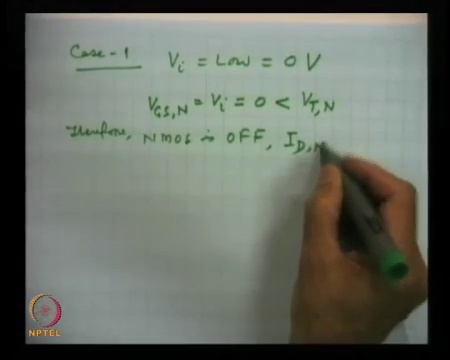 Case-1 Vi = Low = 0 V
VGS,N = Vi = 0 < VT,N
Therefore, NMOS is OFF, ID,N
NPTEL